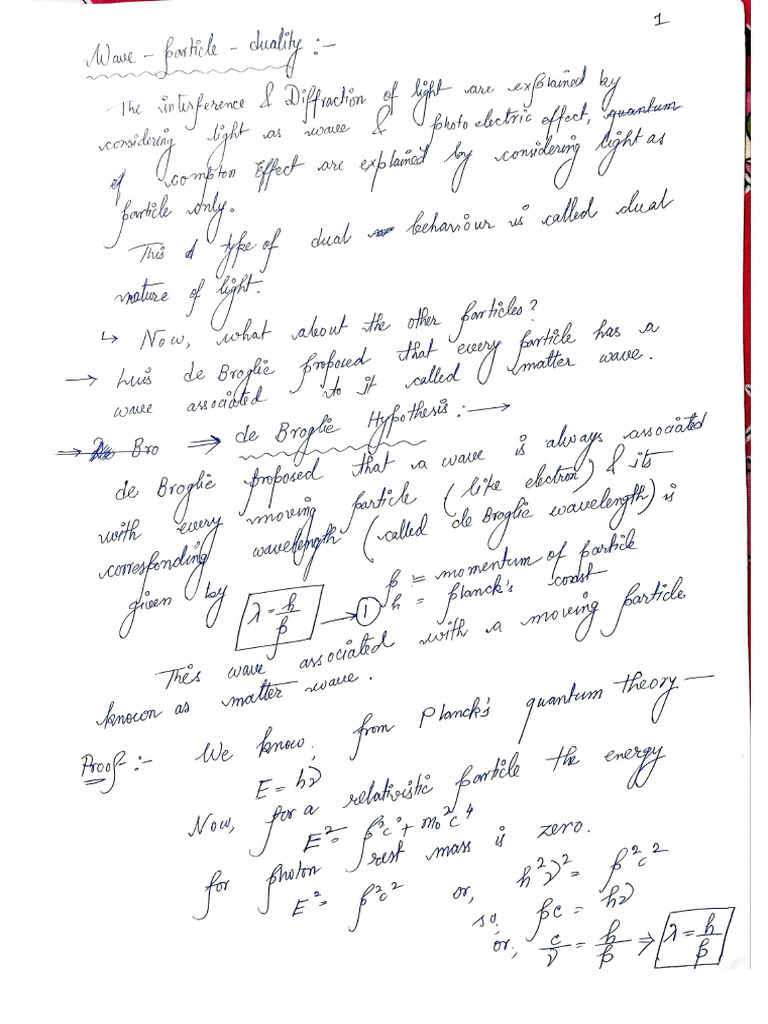 1
Wave - particle - duality :-
The interference & Diffraction of light are explained by
considering light as wave & photo electric effect, quantum
of compton Effect are explained by considering light as
particle only.
This type of dual behaviour is called dual
nature of light.
↳ Now, what about the other particles?
→ Luis de Broglie proposed that every particle has a
wave associated to it called matter wave.
→ Bro ⇒ de Broglie Hypothesis :→
de Broglie proposed that a wave is always associated
with every moving particle (like electron) & its
corresponding wavelength (called de Broglie wavelength) is
given by λ = h/p → ① p = momentum of particle
h = planck's const
This wave associated with a moving particle
known as matter wave.
Proof :- We know, from Planck's quantum theory —
E = hν
Now, for a relativistic particle the energy
E² = p²c² + m₀²c⁴
for photon rest mass is zero.
E² = p²c² or, h²ν² = p²c²
so, pc = hν
or, c/ν = h/p ⇒ λ = h/p